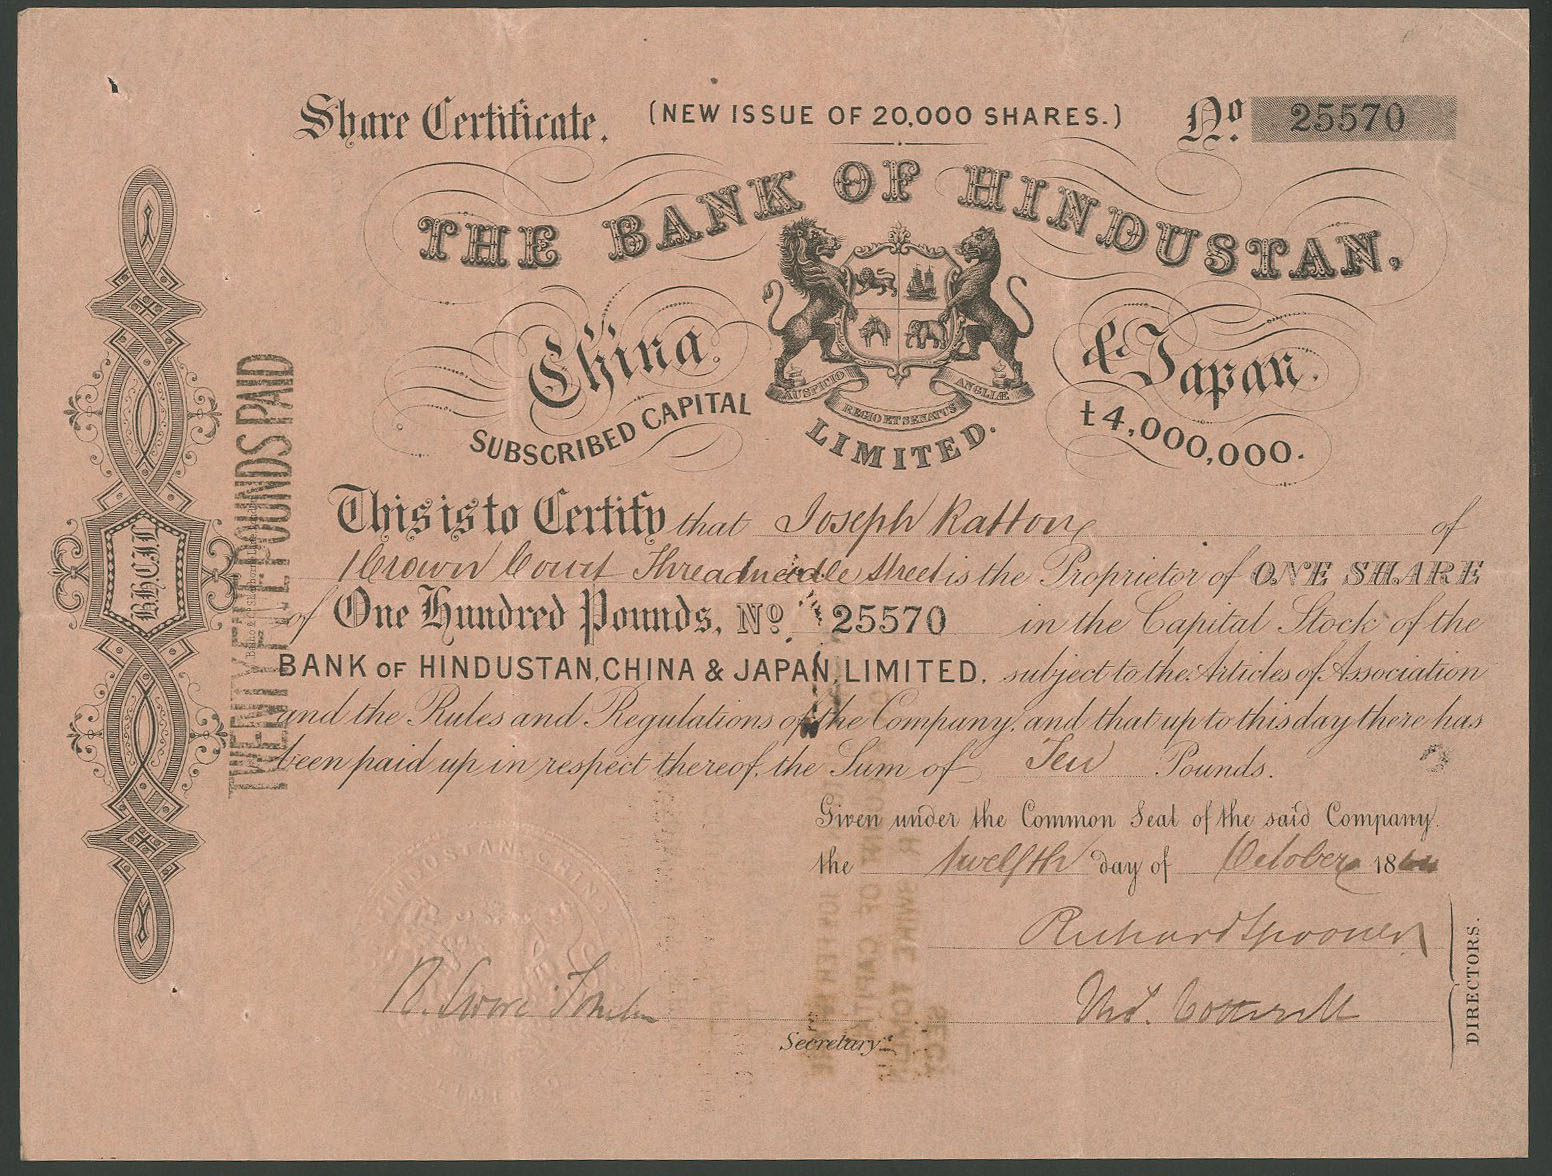 Share Certificate. (NEW ISSUE OF 20,000 SHARES.) No. 25570
THE BANK OF HINDUSTAN,
China & Japan.
AUSPICIO REGIO ET SENATUS ANGLIÆ
SUBSCRIBED CAPITAL £4,000,000.
LIMITED.
This is to Certify that Joseph Rattone of
1 Crown Court Threadneedle Street is the Proprietor of ONE SHARE
of One Hundred Pounds, No. 25570 in the Capital Stock of the
BANK OF HINDUSTAN, CHINA & JAPAN, LIMITED, subject to the Articles of Association
and the Rules and Regulations of the Company, and that up to this day there has
been paid up in respect thereof, the Sum of Ten Pounds.
Given under the Common Seal of the said Company.
the twelfth day of October 1864
Richard Spooner
Thos. Cotterill
DIRECTORS.
Secretary.
BHCJL
TWENTY FIVE POUNDS PAID
HINDUSTAN, CHINA